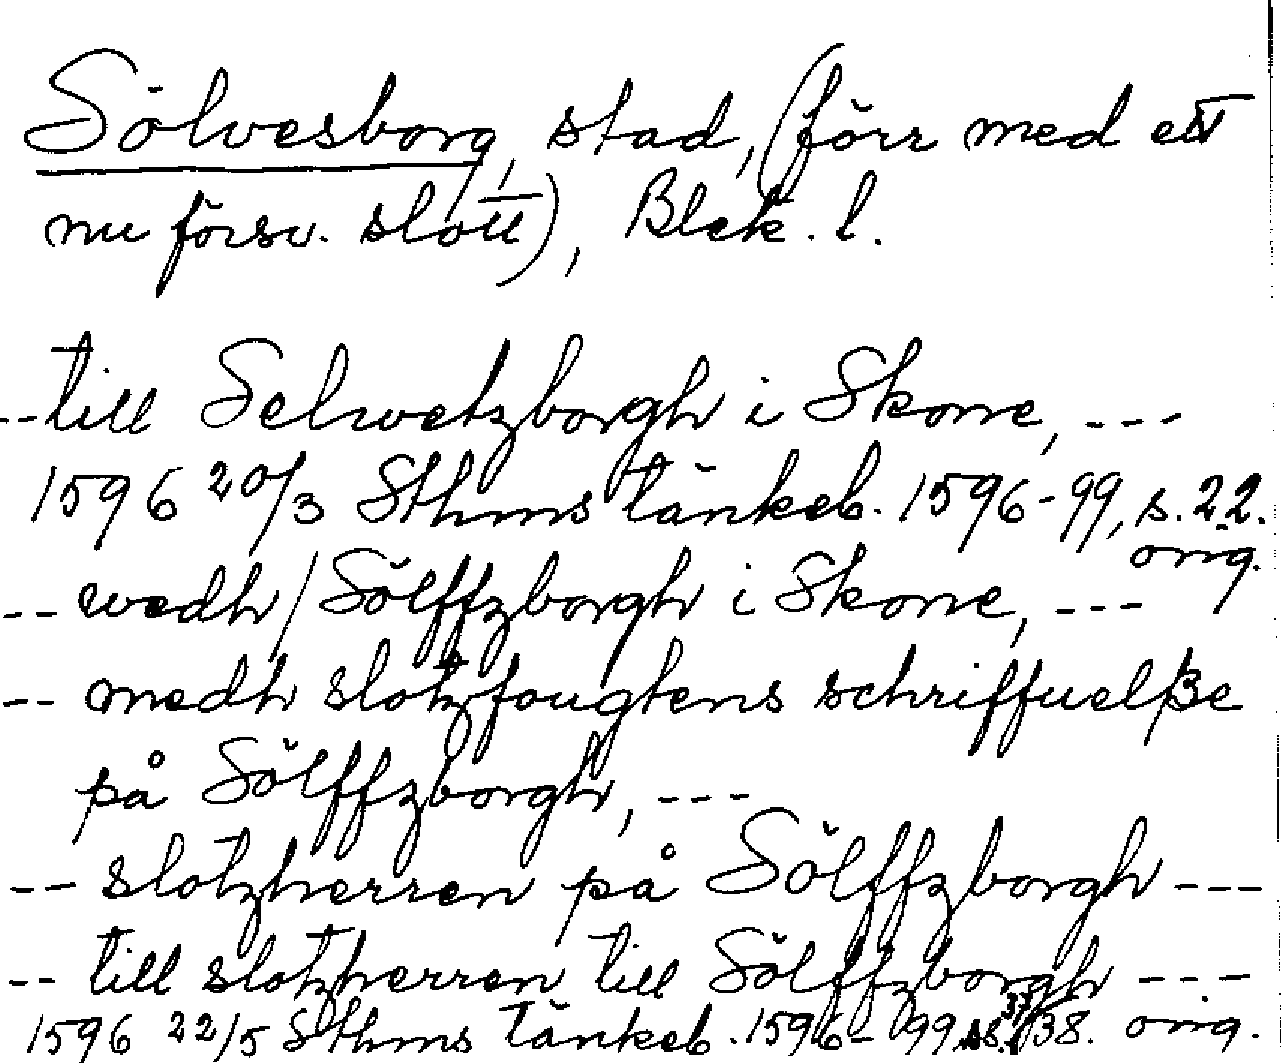 Sölvesborg, stad, (förr med ett
nu försv. slott), Blek. l.
-- till Selwetzborgh i Skone, ---
1596 20/3 Sthms tänkeb. 1596-99, s. 22.
orig.
-- wedh / Sölffzborgh i Skone, ---
-- medh slotzfougtens schriffuelße
på Sölffzborgh, ---
-- slotzherren på Sölffzborgh ---
-- till slotzherren till Sölffzborgh ---
1596 22/5 Sthms tänkeb. 1596-99, ss. 37/38. orig.